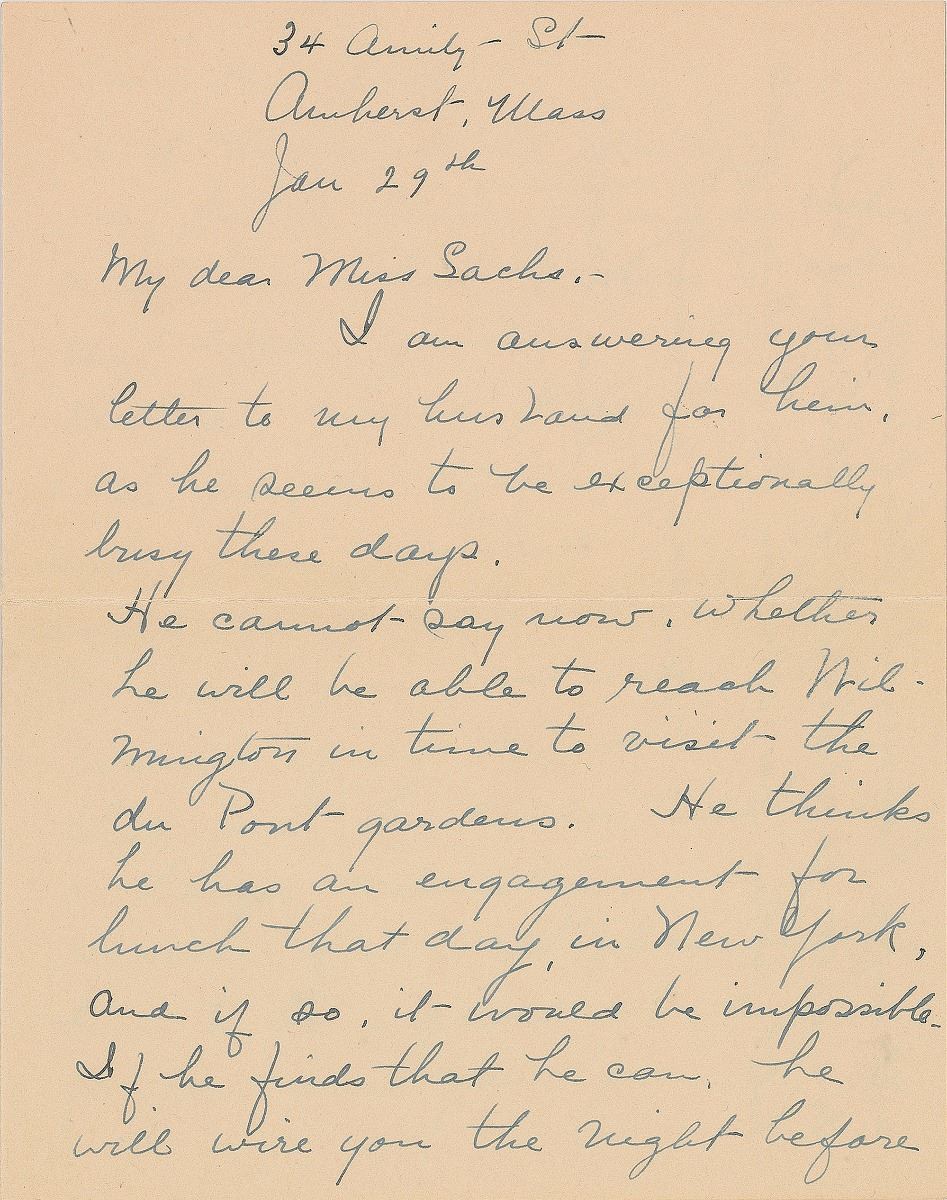 34 Amity St
Amherst, Mass
Jan 29th
My dear Miss Sachs,-
I am answering your
letter to my husband for him,
as he seems to be exceptionally
busy these days.
He cannot say now, whether
he will be able to reach Wil-
mington in time to visit the
du Pont gardens. He thinks
he has an engagement for
lunch that day, in New York,
and if so, it would be impossible.
If he finds that he can, he
will wire you the night before